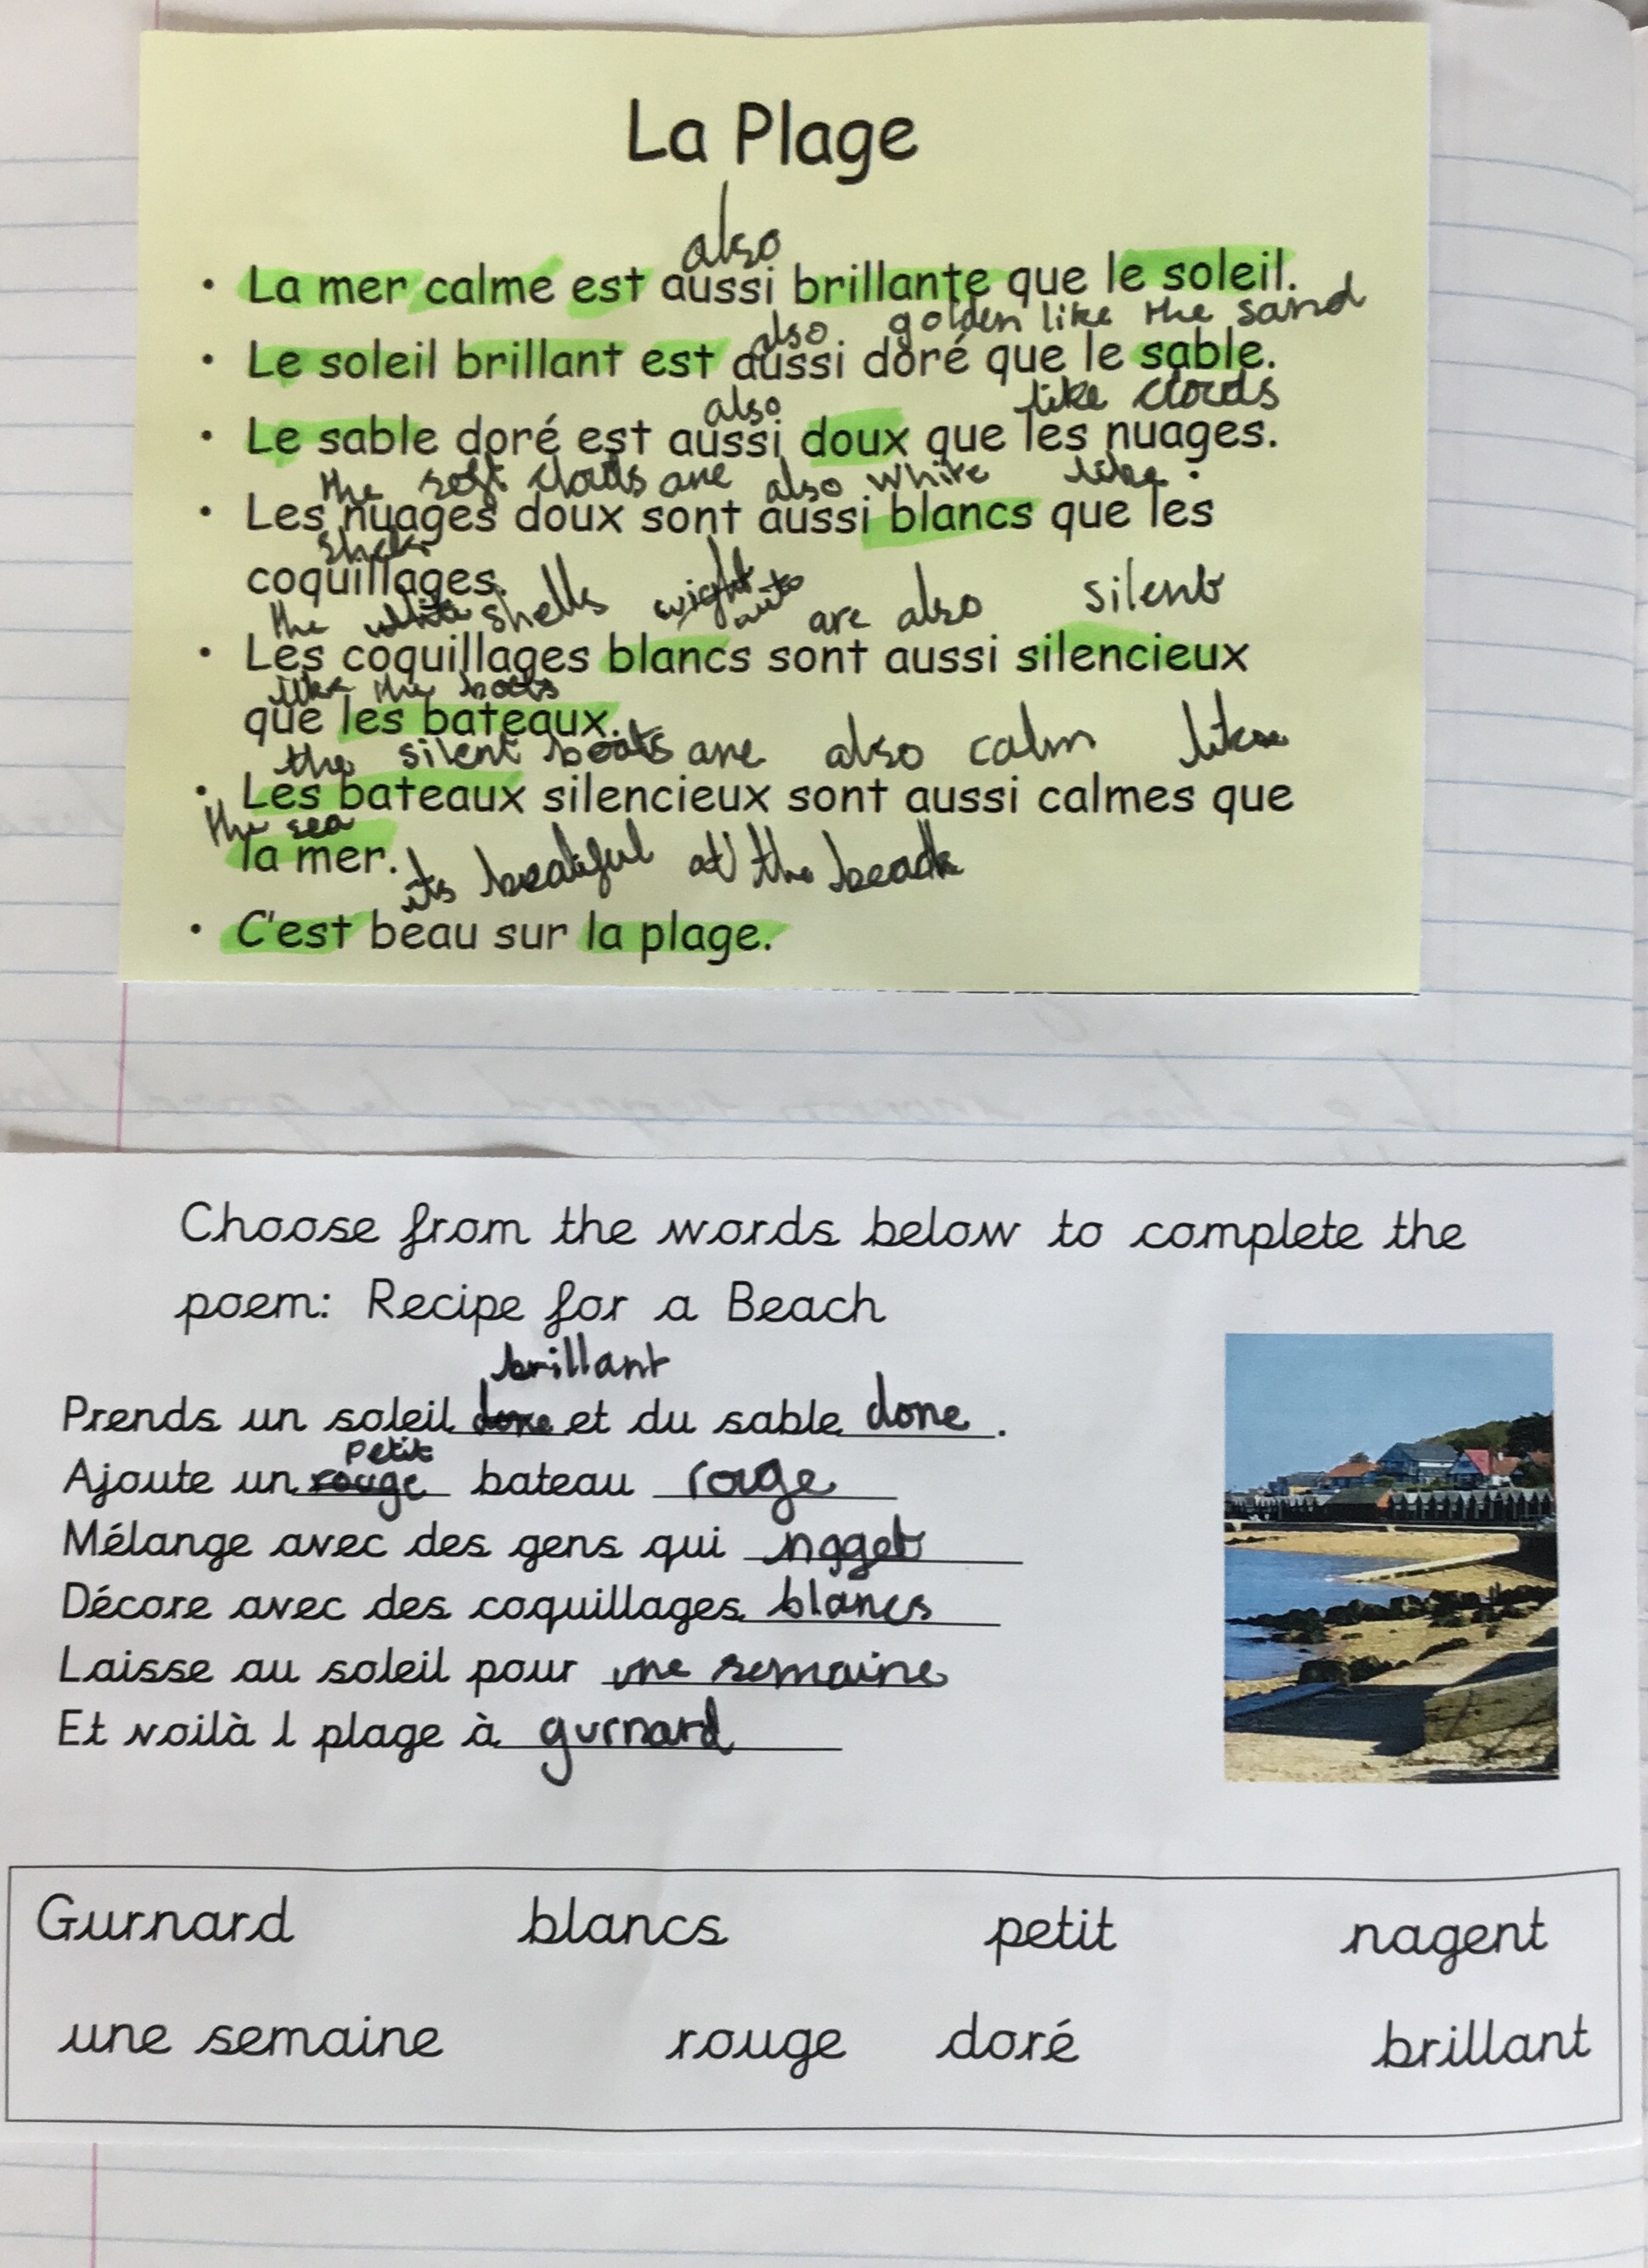 La Plage
also
• La mer calme est aussi brillante que le soleil.
also golden like the sand
• Le soleil brillant est aussi doré que le sable.
also like clouds
• Le sable doré est aussi doux que les nuages.
the soft clouds are also white like
• Les nuages doux sont aussi blancs que les
coquillages.
the white shells are also silent
• Les coquillages blancs sont aussi silencieux
like the boats
que les bateaux.
the silent boats are also calm like
• Les bateaux silencieux sont aussi calmes que
the sea
la mer.
its beatiful at the beach
• C'est beau sur la plage.
Choose from the words below to complete the
poem: Recipe for a Beach
brillant
Prends un soleil dore et du sable dore.
petit
Ajoute un rouge bateau rouge
Mélange avec des gens qui
Décore avec des coquillages blancs
Laisse au soleil pour une semaine
Et voilà l plage à gurnard
Gurnard blancs petit nagent
une semaine rouge doré brillant